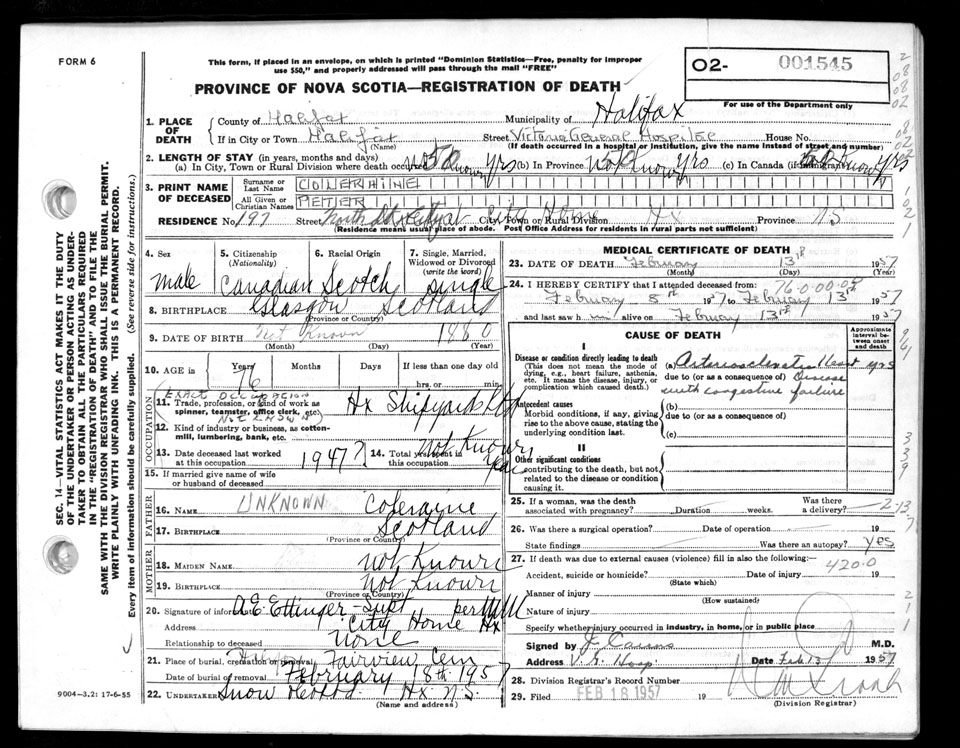 FORM 6
This form, if placed in an envelope, on which is printed "Dominion Statistics—Free, penalty for improper
use $50," and properly addressed will pass through the mail "FREE"
O2- 001545
PROVINCE OF NOVA SCOTIA—REGISTRATION OF DEATH
For use of the Department only
1. PLACE OF DEATH County of Halifax Municipality of Halifax
If in City or Town Halifax Street Victoria General Hospital House No.
(Name) (If death occurred in a hospital or institution, give the name instead of street and number)
2. LENGTH OF STAY (in years, months and days)
(a) In City, Town or Rural Division where death occurred 50 yrs (b) In Province not known yrs (c) In Canada (if immigrant) yrs
3. PRINT NAME OF DECEASED Surname or Last Name COLERAINE
All Given or Christian Names PETER
RESIDENCE No. 197 Street City Home City, Town or Rural Division Hx Province NS
(Residence means usual place of abode. Post Office Address for residents in rural parts not sufficient)
4. Sex 5. Citizenship (Nationality) 6. Racial Origin 7. Single, Married, Widowed or Divorced (write the word)
male Canadian Scotch single
8. BIRTHPLACE Glasgow Scotland
(Province or Country)
9. DATE OF BIRTH Not Known 1880
(Month) (Day) (Year)
10. AGE in Years Months Days If less than one day old
76 hrs. or min.
OCCUPATION
11. Trade, profession, or kind of work as spinner, teamster, office clerk, etc. Hx Shipyards Ltd
(EXACT OCCUPATION NOT KNOWN)
12. Kind of industry or business, as cotton-mill, lumbering, bank, etc.
13. Date deceased last worked at this occupation 1947? 14. Total yrs. spent in this occupation Not Known
15. If married give name of wife or husband of deceased
FATHER
16. NAME UNKNOWN Coleraine
17. BIRTHPLACE Scotland
(Province or Country)
MOTHER
18. MAIDEN NAME Not Known
19. BIRTHPLACE Not Known
(Province or Country)
20. Signature of informant A.E. Ettinger - Supt per
Address City Home Hx
Relationship to deceased None
21. Place of burial, cremation or removal Fairview Cem
Date of burial or removal February 18th 1957
22. UNDERTAKER Snow Hx. N.S.
(Name and address)
9004—3.2: 17-6-55
MEDICAL CERTIFICATE OF DEATH
23. DATE OF DEATH February 13th 1957
(Month) (Day) (Year)
24. I HEREBY CERTIFY that I attended deceased from: 76-0-00-02
February 8th 1957 to February 13th 1957
and last saw him alive on February 13th 1957
CAUSE OF DEATH
Approximate interval between onset and death
I
Disease or condition directly leading to death
(This does not mean the mode of dying, e.g., heart failure, asthenia, etc. It means the disease, injury, or complication which caused death.)
(a) Arteriosclerotic Heart yrs
due to (or as a consequence of) Disease
with congestive failure
Antecedent causes
Morbid conditions, if any, giving rise to the above cause, stating the underlying condition last.
(b)
due to (or as a consequence of)
(c)
II
Other significant conditions
contributing to the death, but not related to the disease or condition causing it.
25. If a woman, was the death associated with pregnancy? Duration weeks. Was there a delivery?
26. Was there a surgical operation? Date of operation 19
State findings Was there an autopsy? Yes
27. If death was due to external causes (violence) fill in also the following:—
420.0
Accident, suicide or homicide? Date of injury 19
(State which)
Manner of injury
(How sustained)
Nature of injury
Specify whether injury occurred in industry, in home, or in public place
Signed by M.D.
Address V. G. Hosp. Date Feb 13 1957
28. Division Registrar's Record Number
29. Filed FEB 18 1957 19
(Division Registrar)
SEC. 14—VITAL STATISTICS ACT MAKES IT THE DUTY
OF THE UNDERTAKER OR PERSON ACTING AS UNDER-
TAKER TO OBTAIN ALL THE PARTICULARS REQUIRED
IN THE "REGISTRATION OF DEATH" AND TO FILE THE
SAME WITH THE DIVISION REGISTRAR WHO SHALL ISSUE THE BURIAL PERMIT.
WRITE PLAINLY WITH UNFADING INK. THIS IS A PERMANENT RECORD.
Every item of information should be carefully supplied. (See reverse side for instructions.)